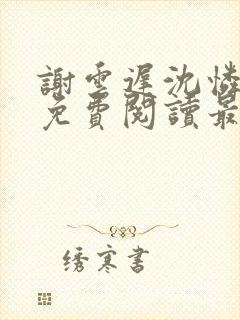 謝雲遲沈憐
免費閱讀最
绣寒書